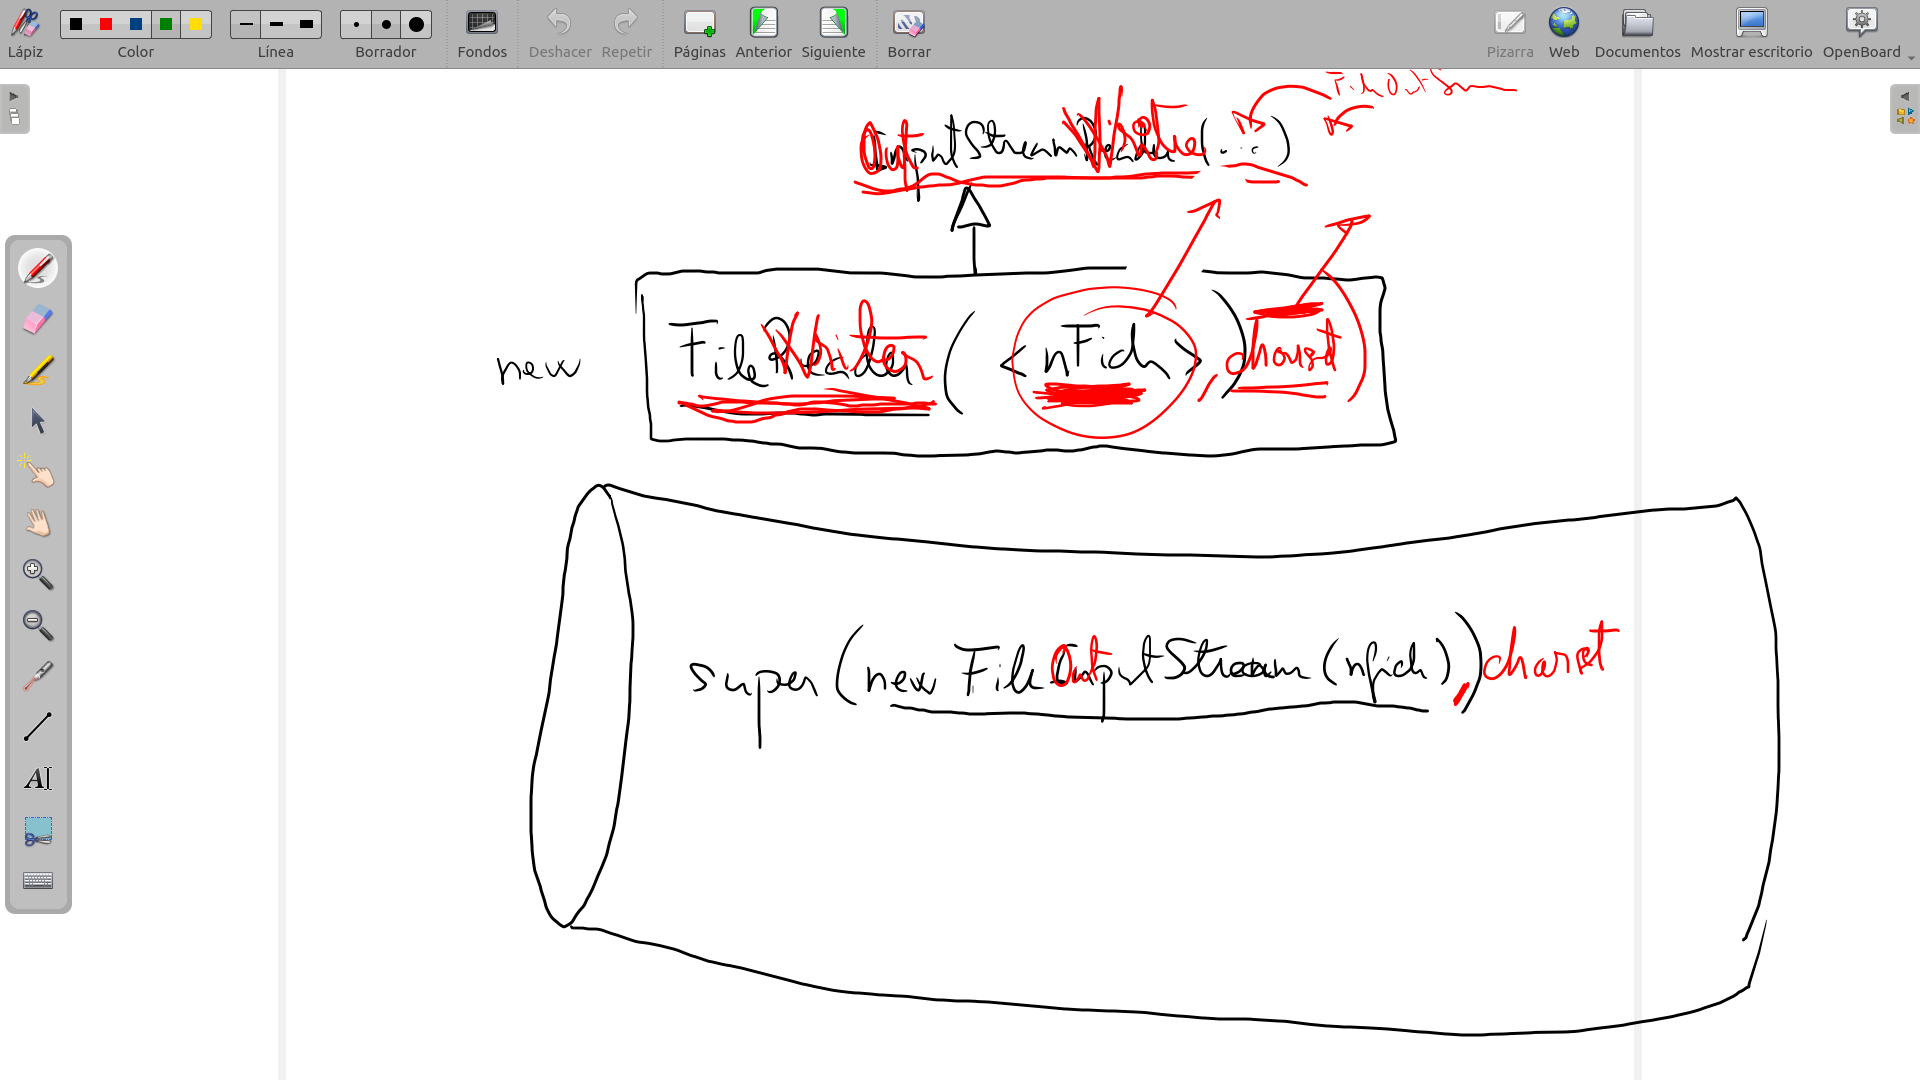 Lápiz Color Línea Borrador Fondos Deshacer Repetir Páginas Anterior Siguiente Borrar Pizarra Web Documentos Mostrar escritorio OpenBoard
OutputStreamWriter(...)
new FileWriter(<nFich>), charset)
super(new FileOutputStream(nfich)), charset